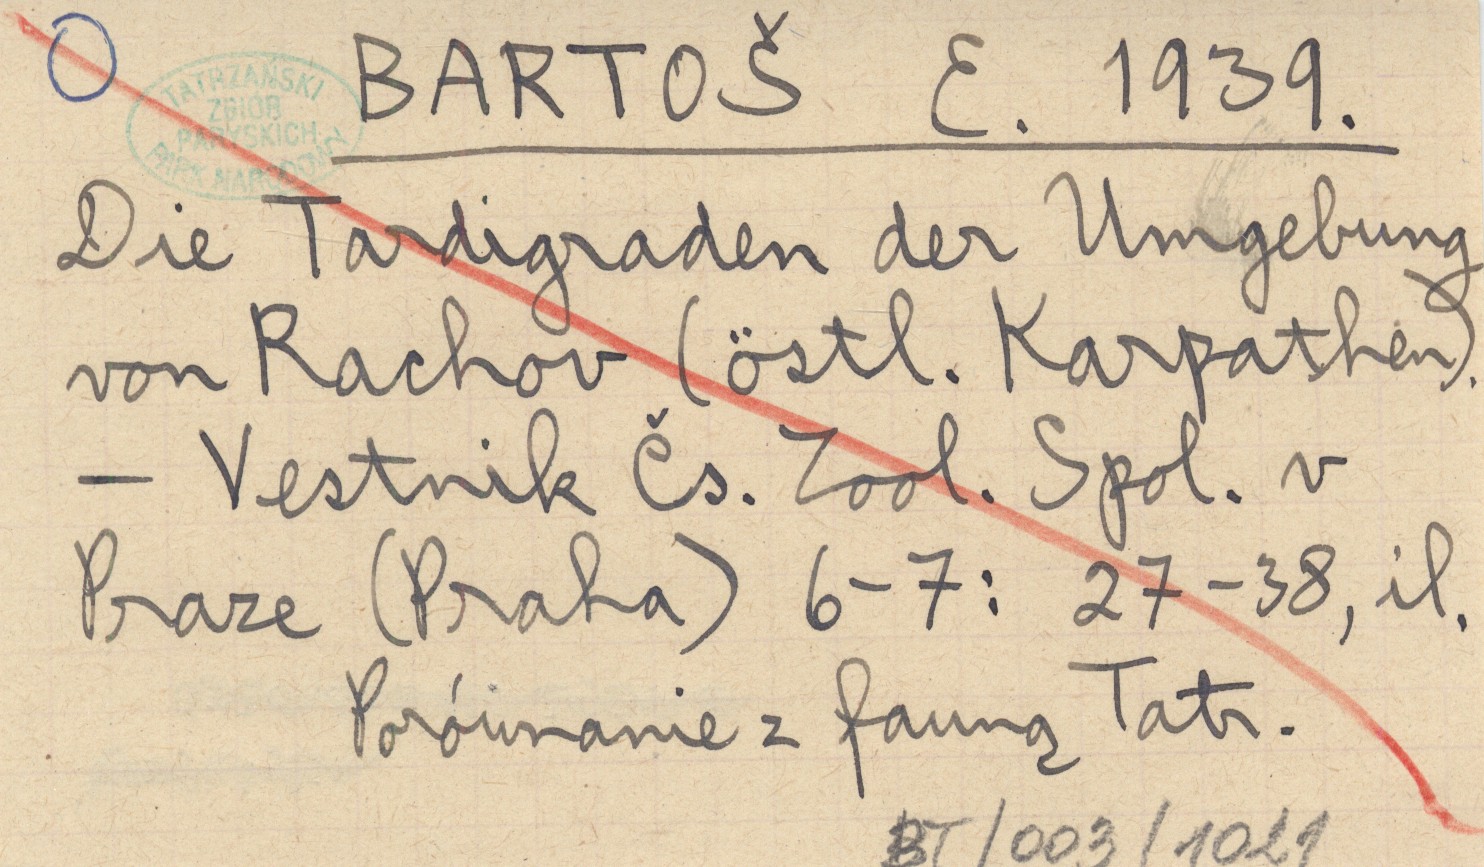 TATRZAŃSKI
ZBIÓR
PARYSKICH
PARK NARODOWY
BARTOŠ E. 1939.
Die Tardigraden der Umgebung
von Rachov (östl. Karpathen).
— Vestnik Čs. Zool. Spol. v
Praze (Praha) 6-7: 27-38, il.
Porównanie z fauną Tatr.
BT/003/1021